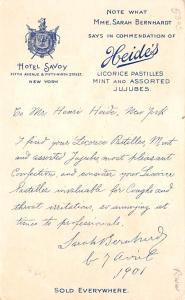 NOTE WHAT
MME. SARAH BERNHARDT
SAYS IN COMMENDATION OF
Heide's
LICORICE PASTILLES
MINT AND ASSORTED
JUJUBES.
HOTEL SAVOY
FIFTH AVENUE & FIFTY-NINTH STREET.
NEW YORK
To Mr. Henri Heide, New York
I find your Licorice Pastilles, Mint
and assorted Jujubes most pleasant
Confection, and consider your Licorice
Pastilles invaluable for Coughs and
throat irritations, so annoying at
times to professionals.
Sarah Bernhardt
6 7 Avril
1901
SOLD EVERYWHERE.